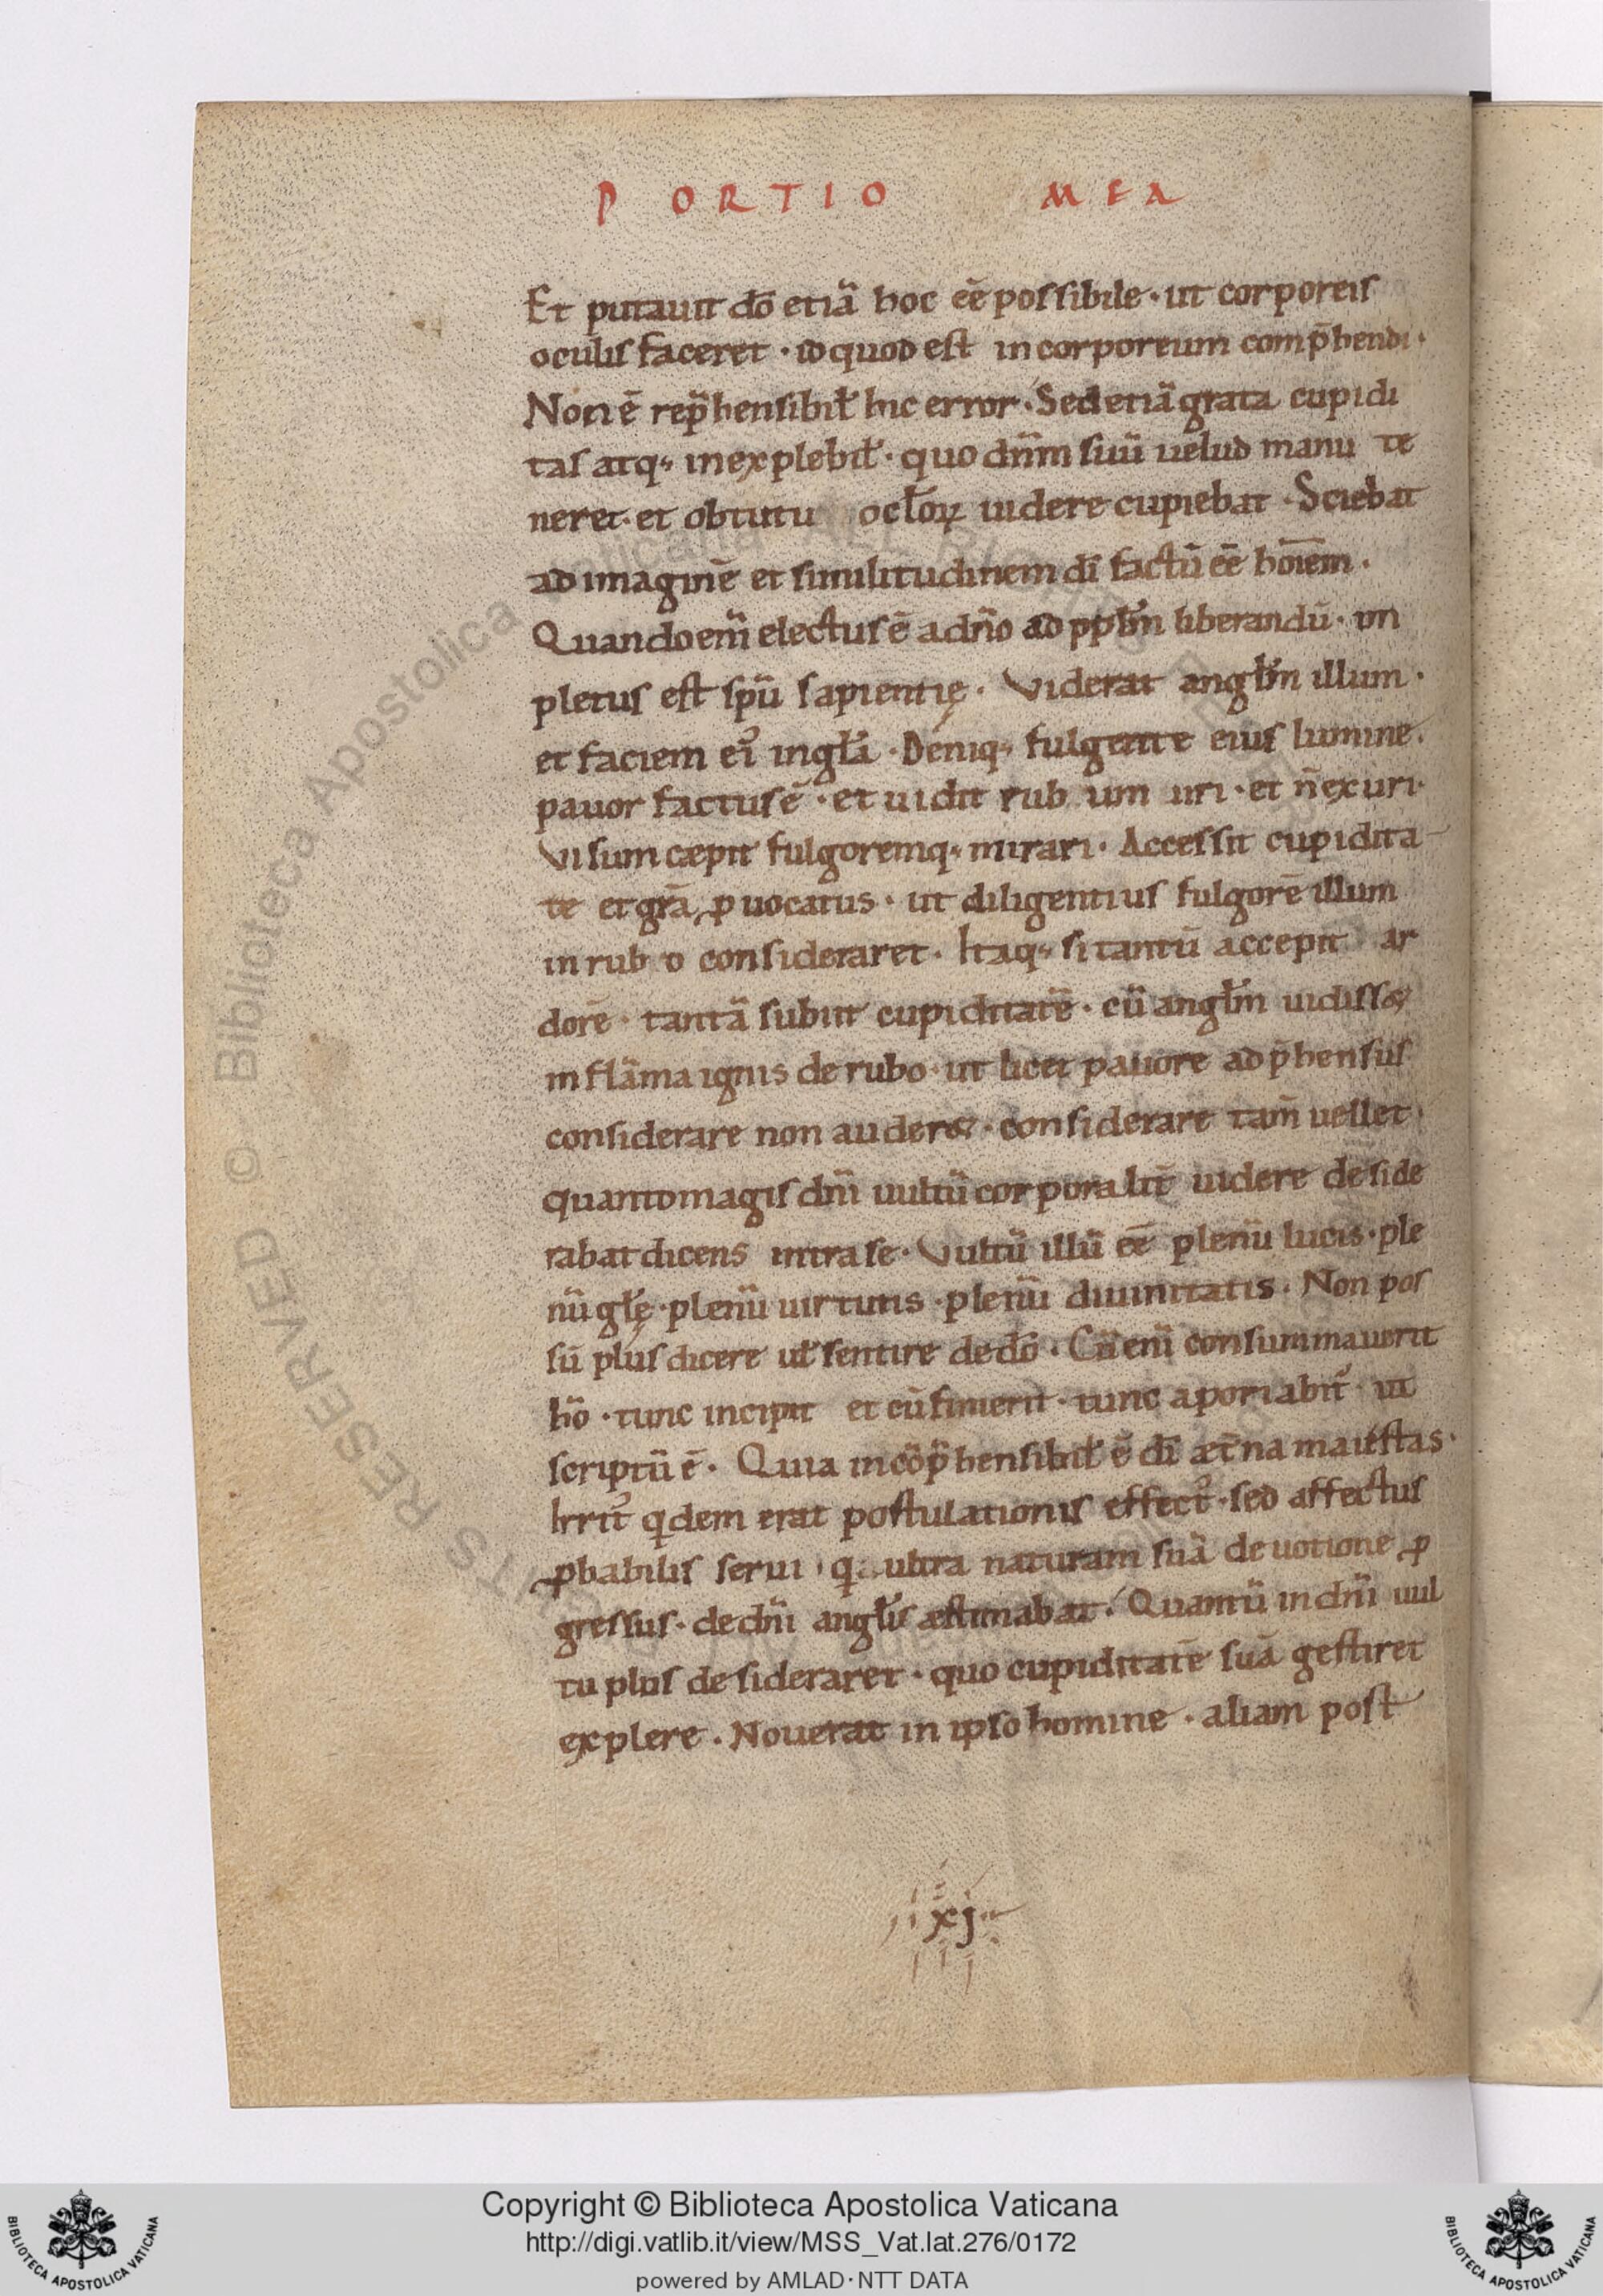 P ORTIO MEA
Et putauit dō etiā hoc ēē possibile · ut corporeis
oculis faceret · id quod est incorporeum comp̄hendi ·
Non ē rep̄hensibil̄ hic error · Sed etiā grata cupidi
tas atq; inexplebil̄ · quo dn̄m suū uelud manu te
neret · et obtutu ocl̄oꝝ uidere cupiebat · Sciebat
ad imaginē et similitudinem dī factū ēē hoīem ·
Quando enī electus ē a dn̄o ad ppl̄m liberandū · im
pletus est sp̄u sapientię · Viderat angl̄m illum ·
et faciem ei᾽ in gl̄a · Deniq; fulgente eius lumine ·
pauor factus ē · et uidit rub um uri · et n̄ exuri ·
Visum cæpit fulgoremq; mirari · Accessit cupidita
te et grā ꝓuocatus · ut diligentius fulgorē illum
in rub o consideraret · Itaq; si tantū accepit ar
dorē · tantā subiit cupiditatē · cū angl̄m uidiss&
in flāma ignis de rubo · ut licet pauore adp̄hensus
considerare non auder& · considerare tam̄ uellet ·
quanto magis dn̄i uultū corporalit̄ uidere deside
rabat dicens intra se · Vultū illū ēē plenū lucis · ple
nū gl̄ę · plenū uirtutis · plenū diuinitatis · Non pos
sū plus dicere ul̄ sentire de dō · Cū enī consummauerit
hō · tunc incipit et cū finierit · tunc aporiabit᾽ · ut
scriptū ē · Quia incōp̄hensibil̄ ē dī æt̄na maiestas ·
Irrit᾽ qdem erat postulationis effect᾽ · sed affectus
ꝓbabilis serui · q ultra naturam suā deuotione ꝓ
gressus · de dn̄i angl̄is æstimabat · Quantū in dn̄i uul
tu plus desideraret · quo cupiditatē suā gestiret
explere · Nouerat in ipso homine · aliam post
xj
Copyright © Biblioteca Apostolica Vaticana
http://digi.vatlib.it/view/MSS_Vat.lat.276/0172
powered by AMLAD·NTT DATA